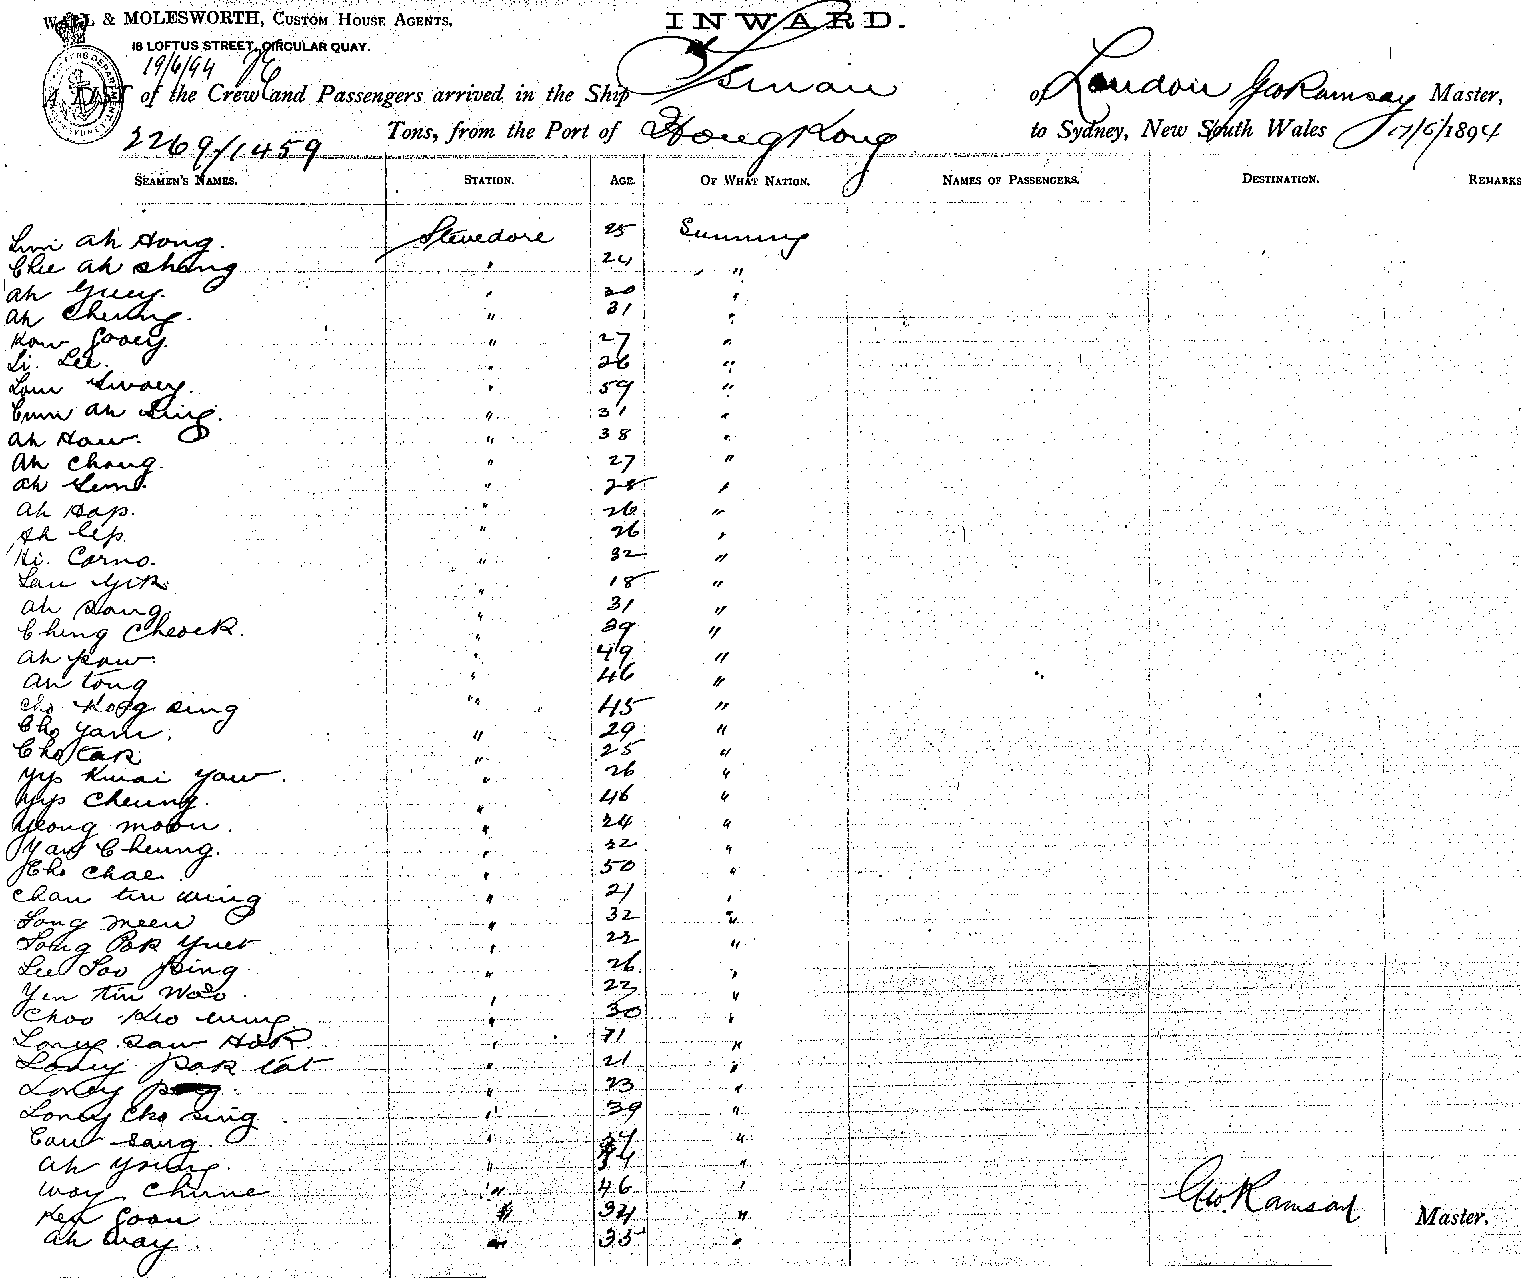 WALL & MOLESWORTH, CUSTOM HOUSE AGENTS.
INWARD.
18 LOFTUS STREET, CIRCULAR QUAY.
19/6/94
A LIST of the Crew and Passengers arrived in the Ship Tsinan of London Geo Ramsay Master,
2269/1459 Tons, from the Port of Hong Kong to Sydney, New South Wales 17/6/1894
SEAMEN'S NAMES. STATION. AGE. OF WHAT NATION. NAMES OF PASSENGERS. DESTINATION. REMARKS
Ah Hong. Stevedore 25 Sunning
Chee Ah Shang " 24 "
Ah Guey. " 30 "
Ah Cheung. " 31 "
Kow Gooey. " 27 "
Li. Lee. " 26 "
Lum " 59 "
Ah Sing. " 31 "
Ah How. " 38 "
Ah Chong. " 27 "
Ah " 28 "
Ah Hap. " 26 "
Ah Yep. " 26 "
Hi. " 32 "
Lau Yik " 18 "
Ah Sang " 31 "
Ching Cheock. " 39 "
Ah Paw. " 49 "
Ah Tong " 46 "
Cho Kong Sing " 45 "
Cho Yam. " 29 "
Cho Tak " 25 "
Yip Kwai Yaw. " 26 "
Yip Cheung. " 46 "
Yeong Moon. " 24 "
Yaw Cheung. " 32 "
Cho Chae. " 50 "
Chan Tin Wing " 21 "
Song Meen " 32 "
Song Pak Yuet " 22 "
Lee Soo Ping " 26 "
Yen Tin Woo. " 22 "
Choo " 30 "
Loney Saw Hok " 71 "
Loney Pak Tat " 21 "
Loney " 23 "
Loney Cho Sing " 39 "
Sang. " "
Ah Young. " 34 "
Way Chune " 46 "
Ken Goon " 34 "
Ah Way " 35 "
Geo. Ramsay Master.